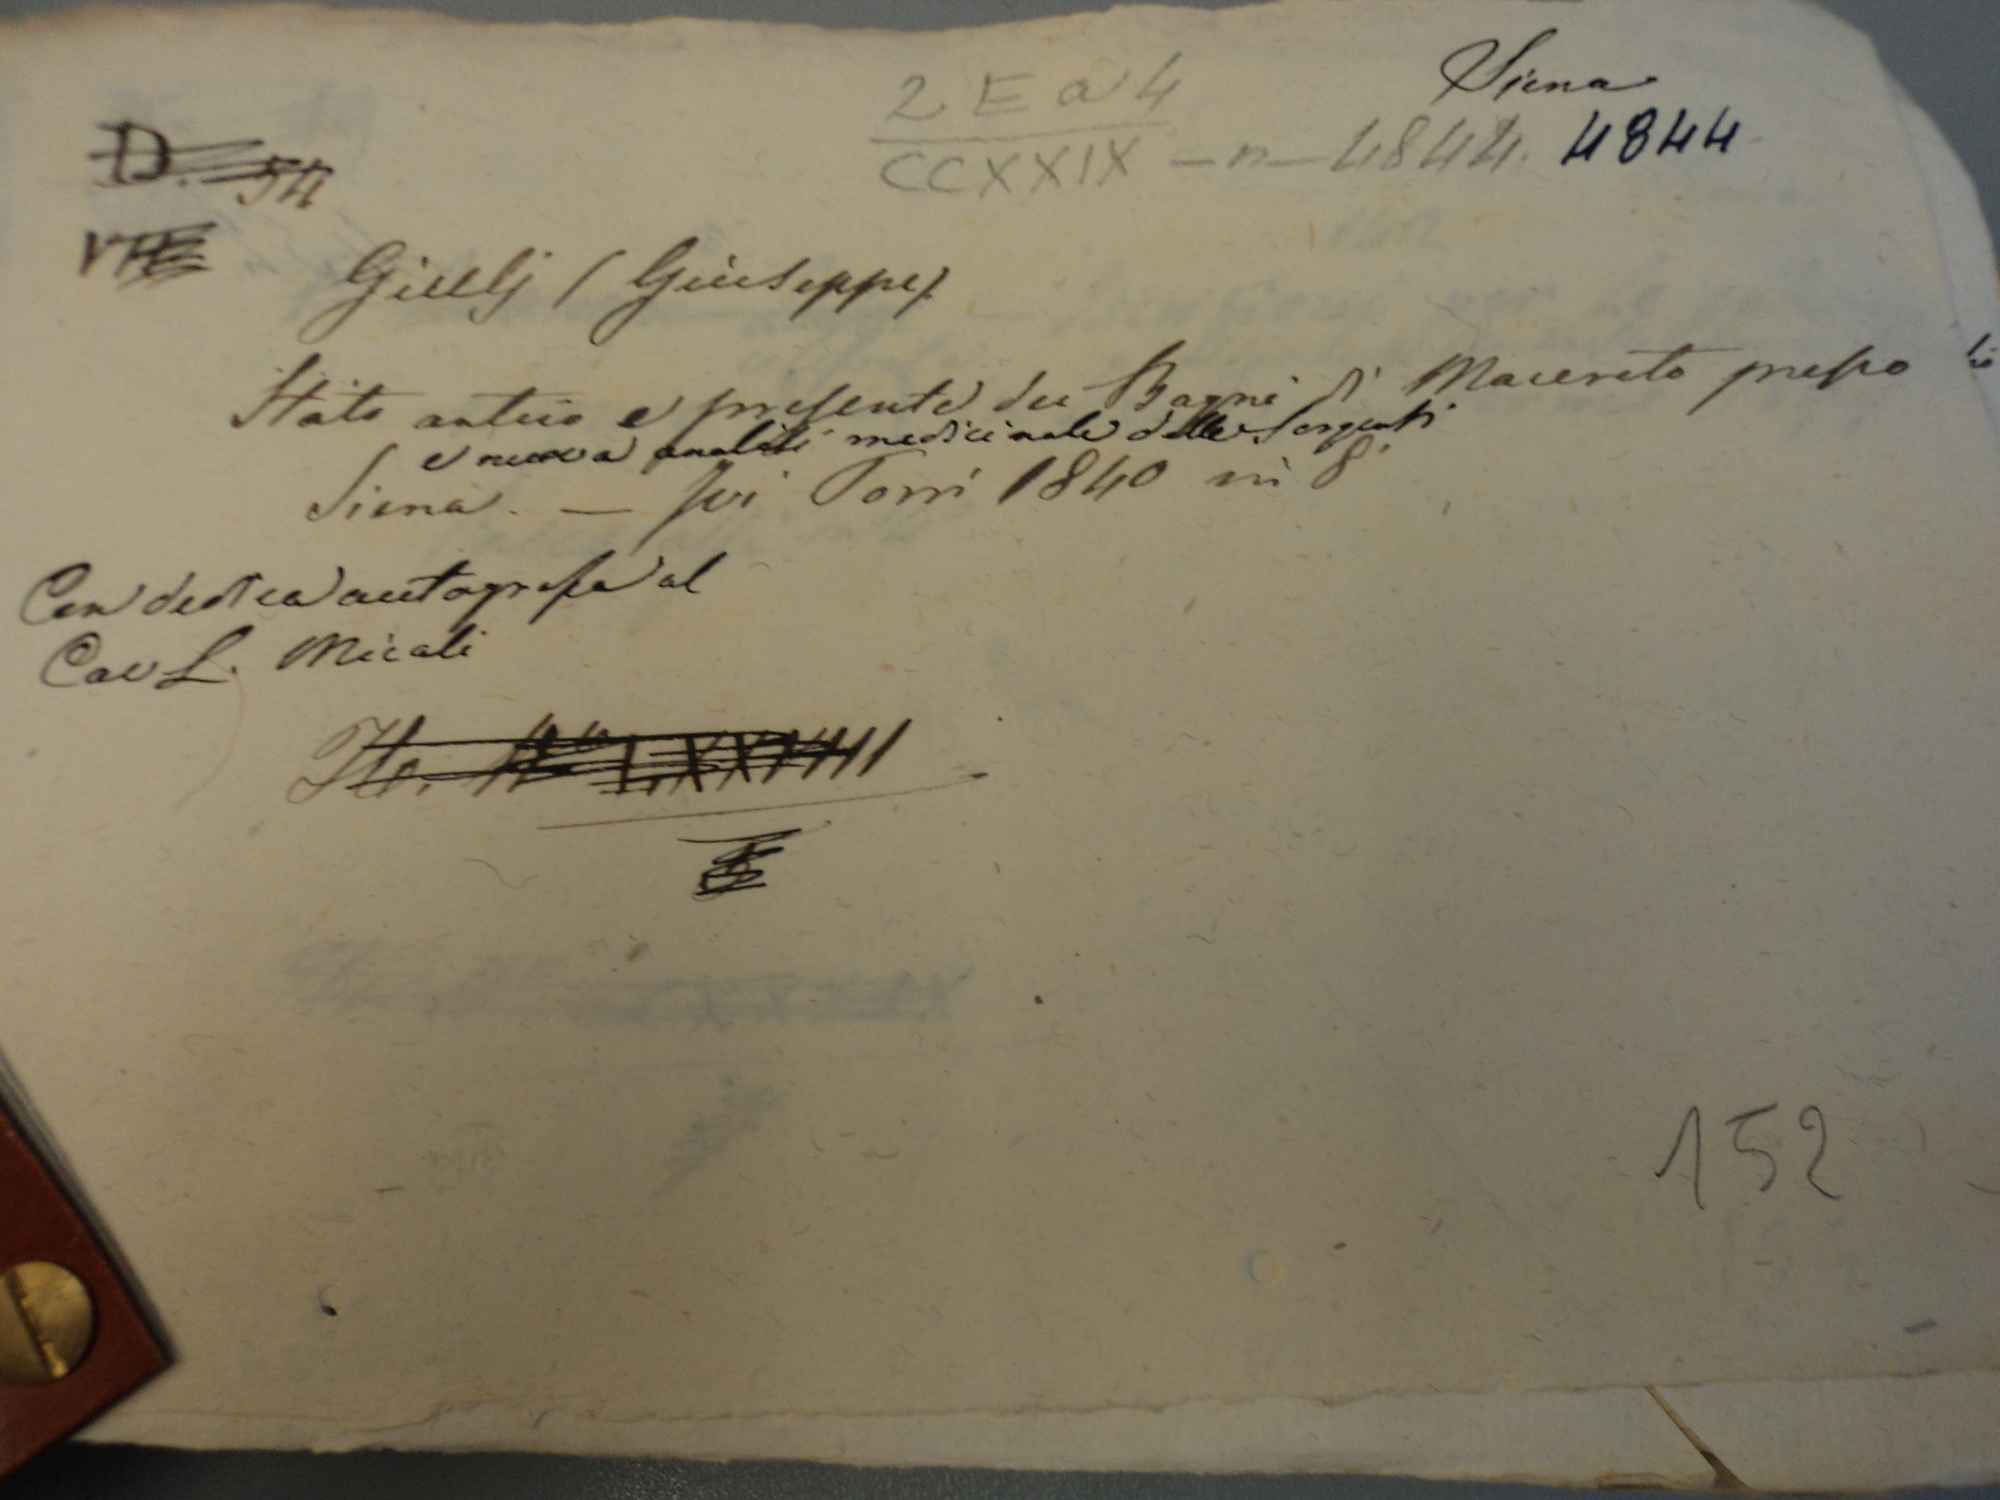 Siena
2 E a 4
CCXXIX — n — 4844. 4844
D. 54
Giulj (Giuseppe)
Stato antico e presente dei Bagni di Macereto presso
e nuova analisi medicinale delle Sorgenti
Siena. — Ivi Torri 1840 in 8°
Con dedica autografa al
Cav L. Micali
152